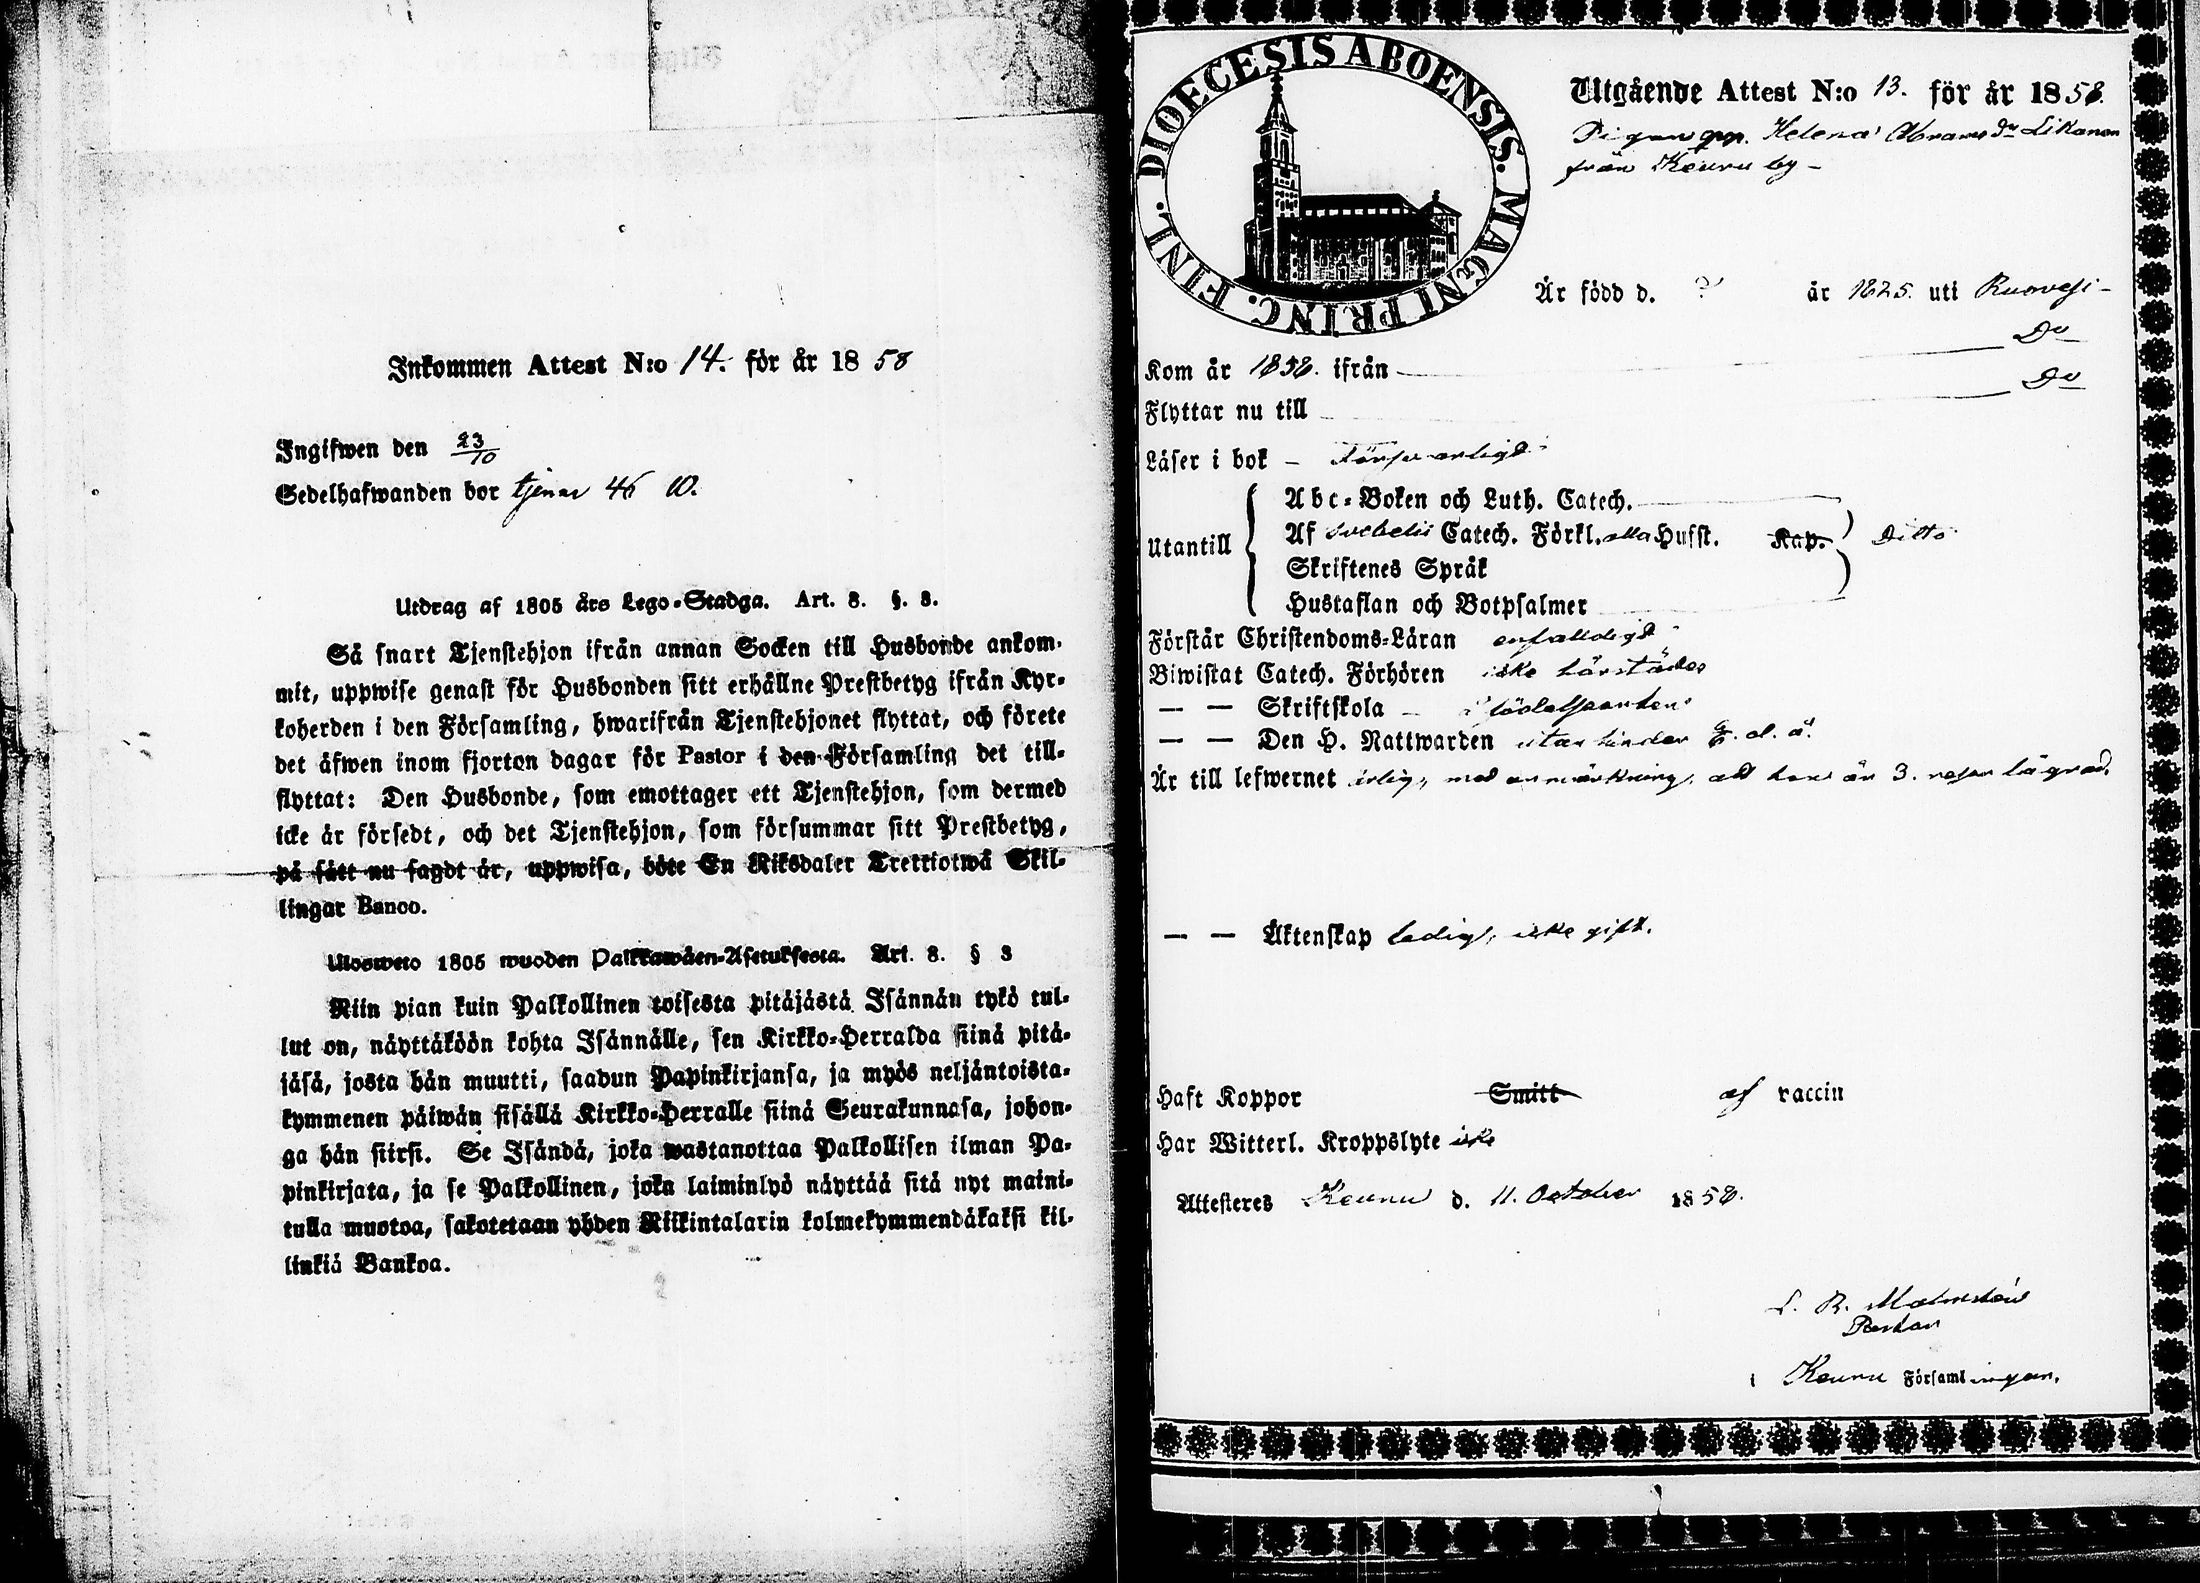 Inkommen Attest N:o 14. för år 1858
Ingifwen den 23/10
Sedelhafwanden bor tjenar 46 10.
Utdrag af 1805 års Lego-Stadga. Art. 8. §. 3.
Så snart Tjenstehjon ifrån annan Socken till Husbonde ankom-
mit, uppwise genast för Husbonden sitt erhållne Prestbetyg ifrån Kyr-
koherden i den Församling, hwarifrån Tjenstehjonet flyttat, och förete
det äfwen inom fjorton dagar för Pastor i den Församling det till-
flyttat: Den Husbonde, som emottager ett Tjenstehjon, som dermed
icke är försedt, och det Tjenstehjon, som försummar sitt Prestbetyg,
på sätt nu sagdt är, uppwisa, böte En Riksdaler Trettiotwå Skil-
lingar Banco.
Ulosweto 1805 wuoden Palkkawäen-Asetuksesta. Art. 8. § 3
Niin pian kuin Palkollinen toisesta pitäjästä Isännän tykö tul-
lut on, näyttäköön kohta Isännälle, sen Kirkko-Herralda siinä pitä-
jäsä, josta hän muutti, saadun Papinkirjansa, ja myös neljäntoista-
kymmenen päiwän sisällä Kirkko-Herralle siinä Seurakunnasa, johon-
ga hän siirsi. Se Isändä, joka wastanottaa Palkollisen ilman Pa-
pinkirjata, ja se Palkollinen, joka laiminlyö näyttää sitä nyt maini-
tulla muotoa, sakotetaan yhden Riikintalarin kolmekymmendäkaksi kil-
linkiä Bankoa.
DIOECESIS ABOENSIS. MAGNI PRINC. FINL.
Utgående Attest N:o 13. för år 1858.
Pigan Helena Abrams dr Likanen
från Keuru by -
Är född d. ? år 1825. uti Ruovesi -
Kom år 1858. ifrån Do
Flyttar nu till Do
Läser i bok - försvarligt
Abc-Boken och Luth. Catech.
Utantill Af Svebelii Catech. Förkl. alla Husst. Kap. Ditto
Skriftenes Språk
Hustaflan och Botpsalmer
Förstår Christendoms-Läran enfaldigt
Biwistat Catech. Förhören icke härstädes
— — Skriftskola - i födelseorten
— — Den H. Nattwarden utan hinder
Är till lefwernet ärlig, med anmärkning, att hon är 3. resor lägrad.
— — Äktenskap ledig, icke gift.
Haft Koppor Smitt af vaccin
Har Witterl. Kroppslyte icke
Attesteres Keuru d. 11. October 1858.
Malmstén
Pastor
i Keuru Församlingen.